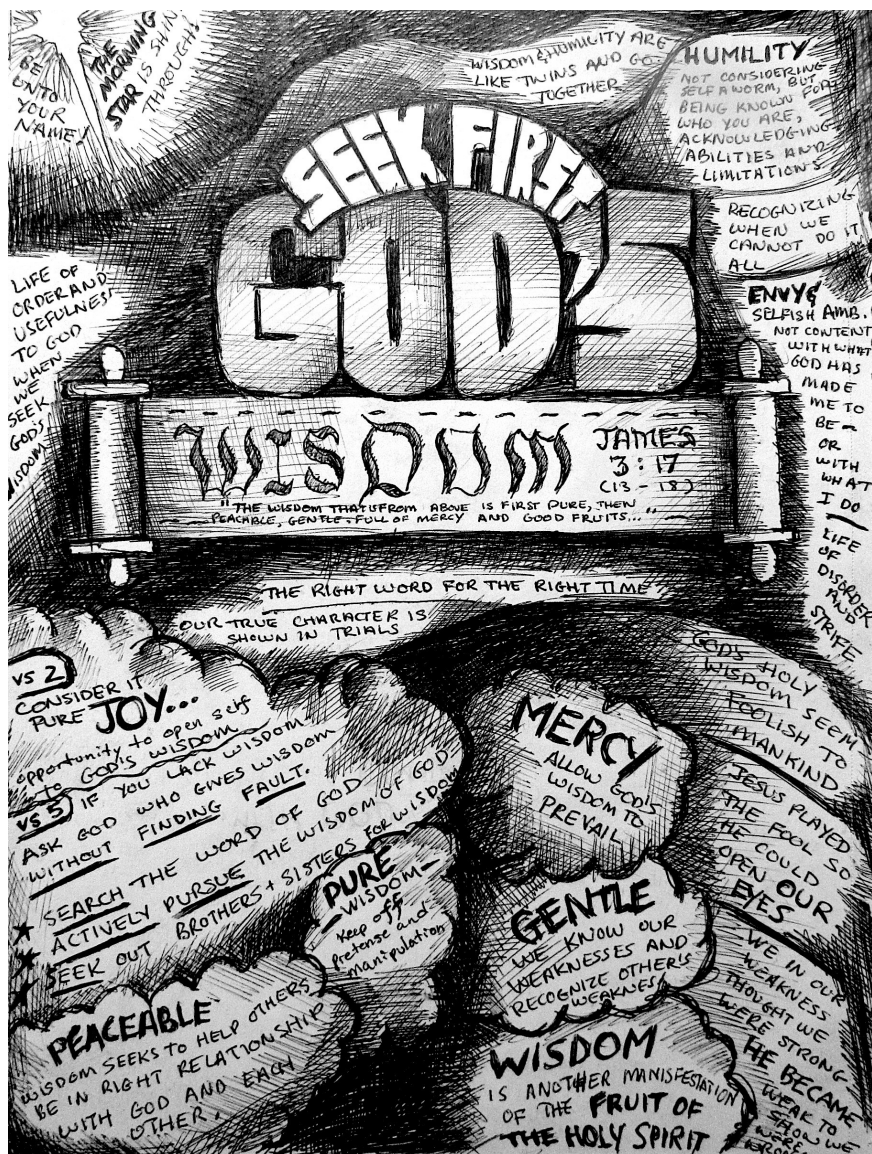 BE
UNTO
YOUR
NAME!
THE
MORNING
STAR IS SHIN
THROUGH!
WISDOM & HUMILITY ARE
LIKE TWINS AND GO
TOGETHER
HUMILITY
NOT CONSIDERING
SELF A WORM, BUT
BEING KNOWN FOR
WHO YOU ARE,
ACKNOWLEDGING
ABILITIES AND
LIMITATIONS
RECOGNIZING
WHEN WE
CANNOT DO IT
ALL
SEEK FIRST
GOD'S
WISDOM
JAMES
3:17
(13-18)
"THE WISDOM THAT IS FROM ABOVE IS FIRST PURE, THEN
PEACHABLE, GENTLE, FULL OF MERCY AND GOOD FRUITS..."
LIFE OF
ORDER AND
USEFULNESS
TO GOD
WHEN
WE
SEEK
GOD'S
WISDOM
ENVY &
SELFISH AMB.
NOT CONTENT
WITH WHAT
GOD HAS
MADE
ME TO
BE -
OR
WITH
WHAT
I DO
LIFE
OF
DISORDER
AND
STRIFE
THE RIGHT WORD FOR THE RIGHT TIME
OUR TRUE CHARACTER IS
SHOWN IN TRIALS
VS 2
CONSIDER IT
PURE JOY...
opportunity to open self
to GOD'S WISDOM
VS 5 IF YOU LACK WISDOM
ASK GOD WHO GIVES WISDOM
WITHOUT FINDING FAULT.
SEARCH THE WORD OF GOD
ACTIVELY PURSUE THE WISDOM OF GOD
SEEK OUT BROTHERS + SISTERS FOR WISDOM
PURE
WISDOM
Keep off
pretense and
manipulation
PEACEABLE
WISDOM SEEKS TO HELP OTHERS
BE IN RIGHT RELATIONSHIP
WITH GOD AND EACH
OTHER.
MERCY
ALLOW GOD'S
WISDOM TO
PREVAIL
GENTLE
WE KNOW OUR
WEAKNESSES AND
RECOGNIZE OTHER'S
WEAKNESS
WISDOM
IS ANOTHER MANISFESTATION
OF THE FRUIT OF
THE HOLY SPIRIT
GOD'S HOLY
WISDOM SEEM
FOOLISH TO
MANKIND
JESUS PLAYED
THE FOOL SO
HE COULD
OPEN OUR
EYES
WE IN OUR
WEAKNESS
THOUGHT WE
WERE STRONG-
HE BECAME
WEAK TO
SHOW WE
WERE